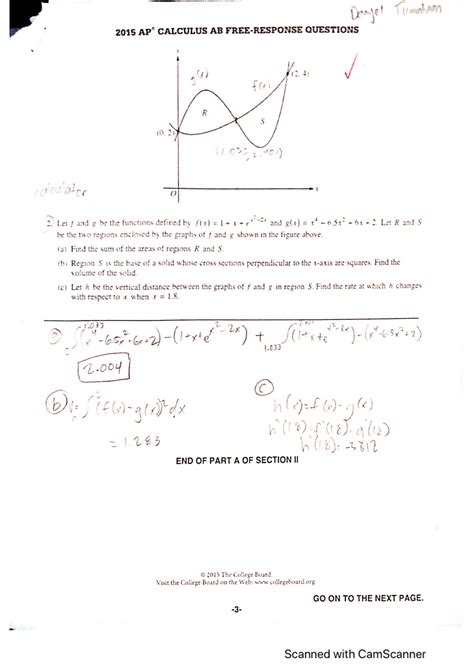 2015 AP® CALCULUS AB FREE-RESPONSE QUESTIONS
g(x)
f(x)
(2, 4)
R
S
(0, 2)
O
x
calculator
2. Let f and g be the functions defined by f(x) = 1 + x + e^(x²−2x) and g(x) = x⁴ − 6.5x² + 6x + 2. Let R and S
be the two regions enclosed by the graphs of f and g shown in the figure above.
(a) Find the sum of the areas of regions R and S.
(b) Region S is the base of a solid whose cross sections perpendicular to the x-axis are squares. Find the
volume of the solid.
(c) Let h be the vertical distance between the graphs of f and g in region S. Find the rate at which h changes
with respect to x when x = 1.8.
2.004
(b) ∫(f(x)-g(x))²dx
= 1.283
(c)
h(x)=f(x)-g(x)
h'(1.8)=f'(1.8)-g'(1.8)
h'(1.8)=-3.812
END OF PART A OF SECTION II
© 2015 The College Board.
Visit the College Board on the Web: www.collegeboard.org.
GO ON TO THE NEXT PAGE.
-3-
Scanned with CamScanner